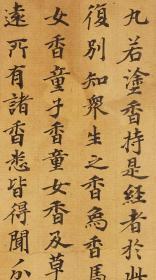 丸若塗香持是經者於此
復別知衆生之香象香馬
女香童子香童女香及草
遠所有諸香悉皆得聞分